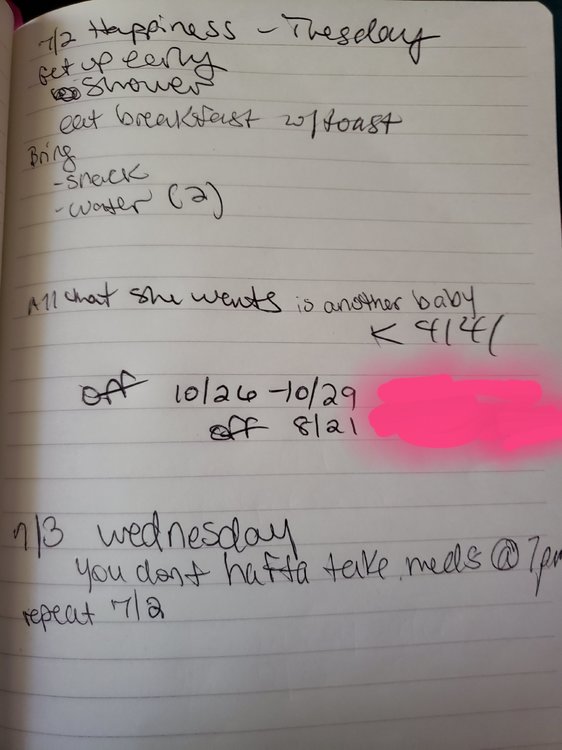 7/2 Happiness - Tuesday
Get up early
shower
eat breakfast w/toast
Bring
-snack
-water (2)
All that she wants is another baby
off 10/26 -10/29
off 8/21
7/3 wednesday
you dont hafta take meds @ 7pm
repeat 7/2